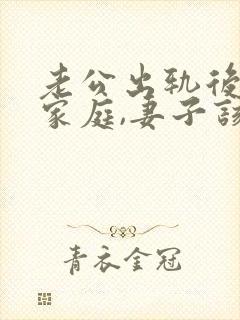 老公出轨後
家庭,妻子該
青衣金冠